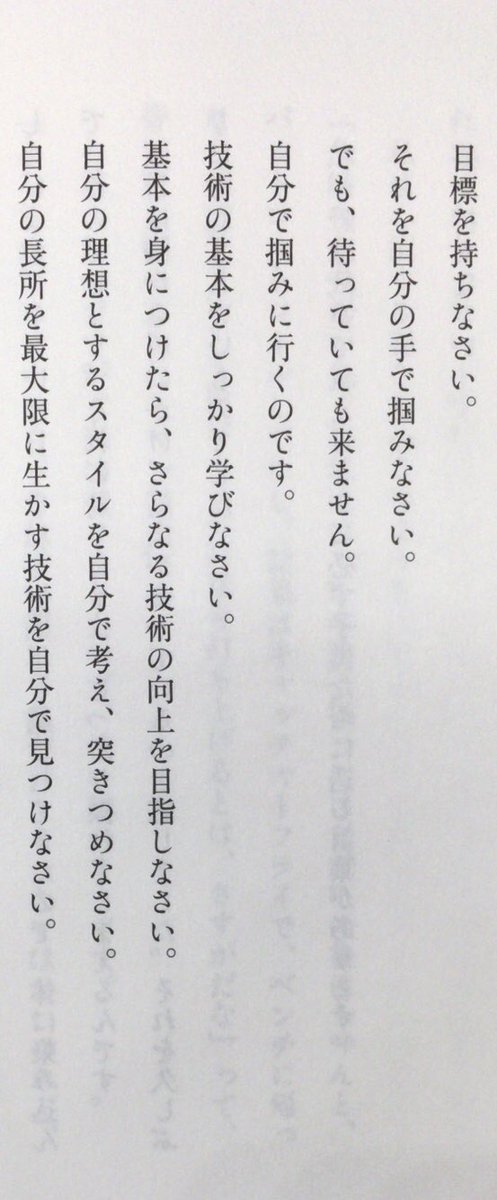 目標を持ちなさい。
それを自分の手で掴みなさい。
でも、待っていても来ません。
自分で掴みに行くのです。
技術の基本をしっかり学びなさい。
基本を身につけたら、さらなる技術の向上を目指しなさい。
自分の理想とするスタイルを自分で考え、突きつめなさい。
自分の長所を最大限に生かす技術を自分で見つけなさい。